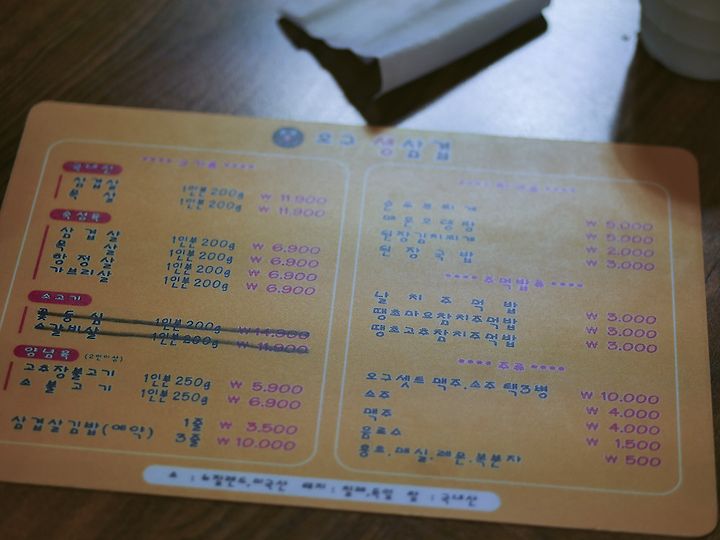 오구 생삼겹
**** 고기류 ****
국내산
삼겹살 1인분 200g ₩ 11.900
목살 1인분 200g ₩ 11.900
숙성육
삼겹살 1인분 200g ₩ 6.900
목살 1인분 200g ₩ 6.900
항정살 1인분 200g ₩ 6.900
가브리살 1인분 200g ₩ 6.900
소고기
꽃등심 1인분 200g ₩ 11.900
소갈비살 1인분 200g ₩ 11.900
양념육 (2인이상)
고추장불고기 1인분 250g ₩ 5.900
소불고기 1인분 250g ₩ 6.900
삼겹살김밥(예약) 1줄 ₩ 3.500
3줄 ₩ 10.000
순두부찌개 ₩ 5.000
매운오뎅탕 ₩ 5.000
된장김치찌개 ₩ 2.000
된장국밥 ₩ 3.000
**** 주먹밥류 ****
날치주먹밥 ₩ 3.000
땡초마요참치주먹밥 ₩ 3.000
땡초고추참치주먹밥 ₩ 3.000
**** 주류 ****
오구세트 맥주,소주 택3병 ₩ 10.000
소주 ₩ 4.000
맥주 ₩ 4.000
음료수 ₩ 1.500
홍초.매실.레몬.복분자 ₩ 500
소 : 뉴질랜드,미국산 돼지 : 칠레,독일 쌀 : 국내산